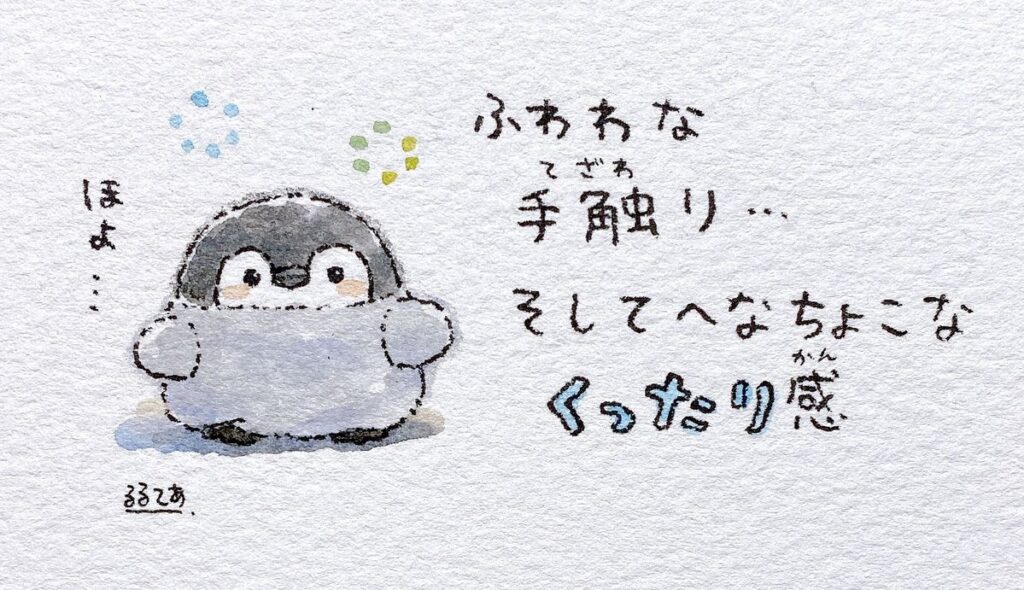 ほよ…
ふわわな
てざわ
手触り…
そしてへなちょこな
かん
くったり感
るるてあ.